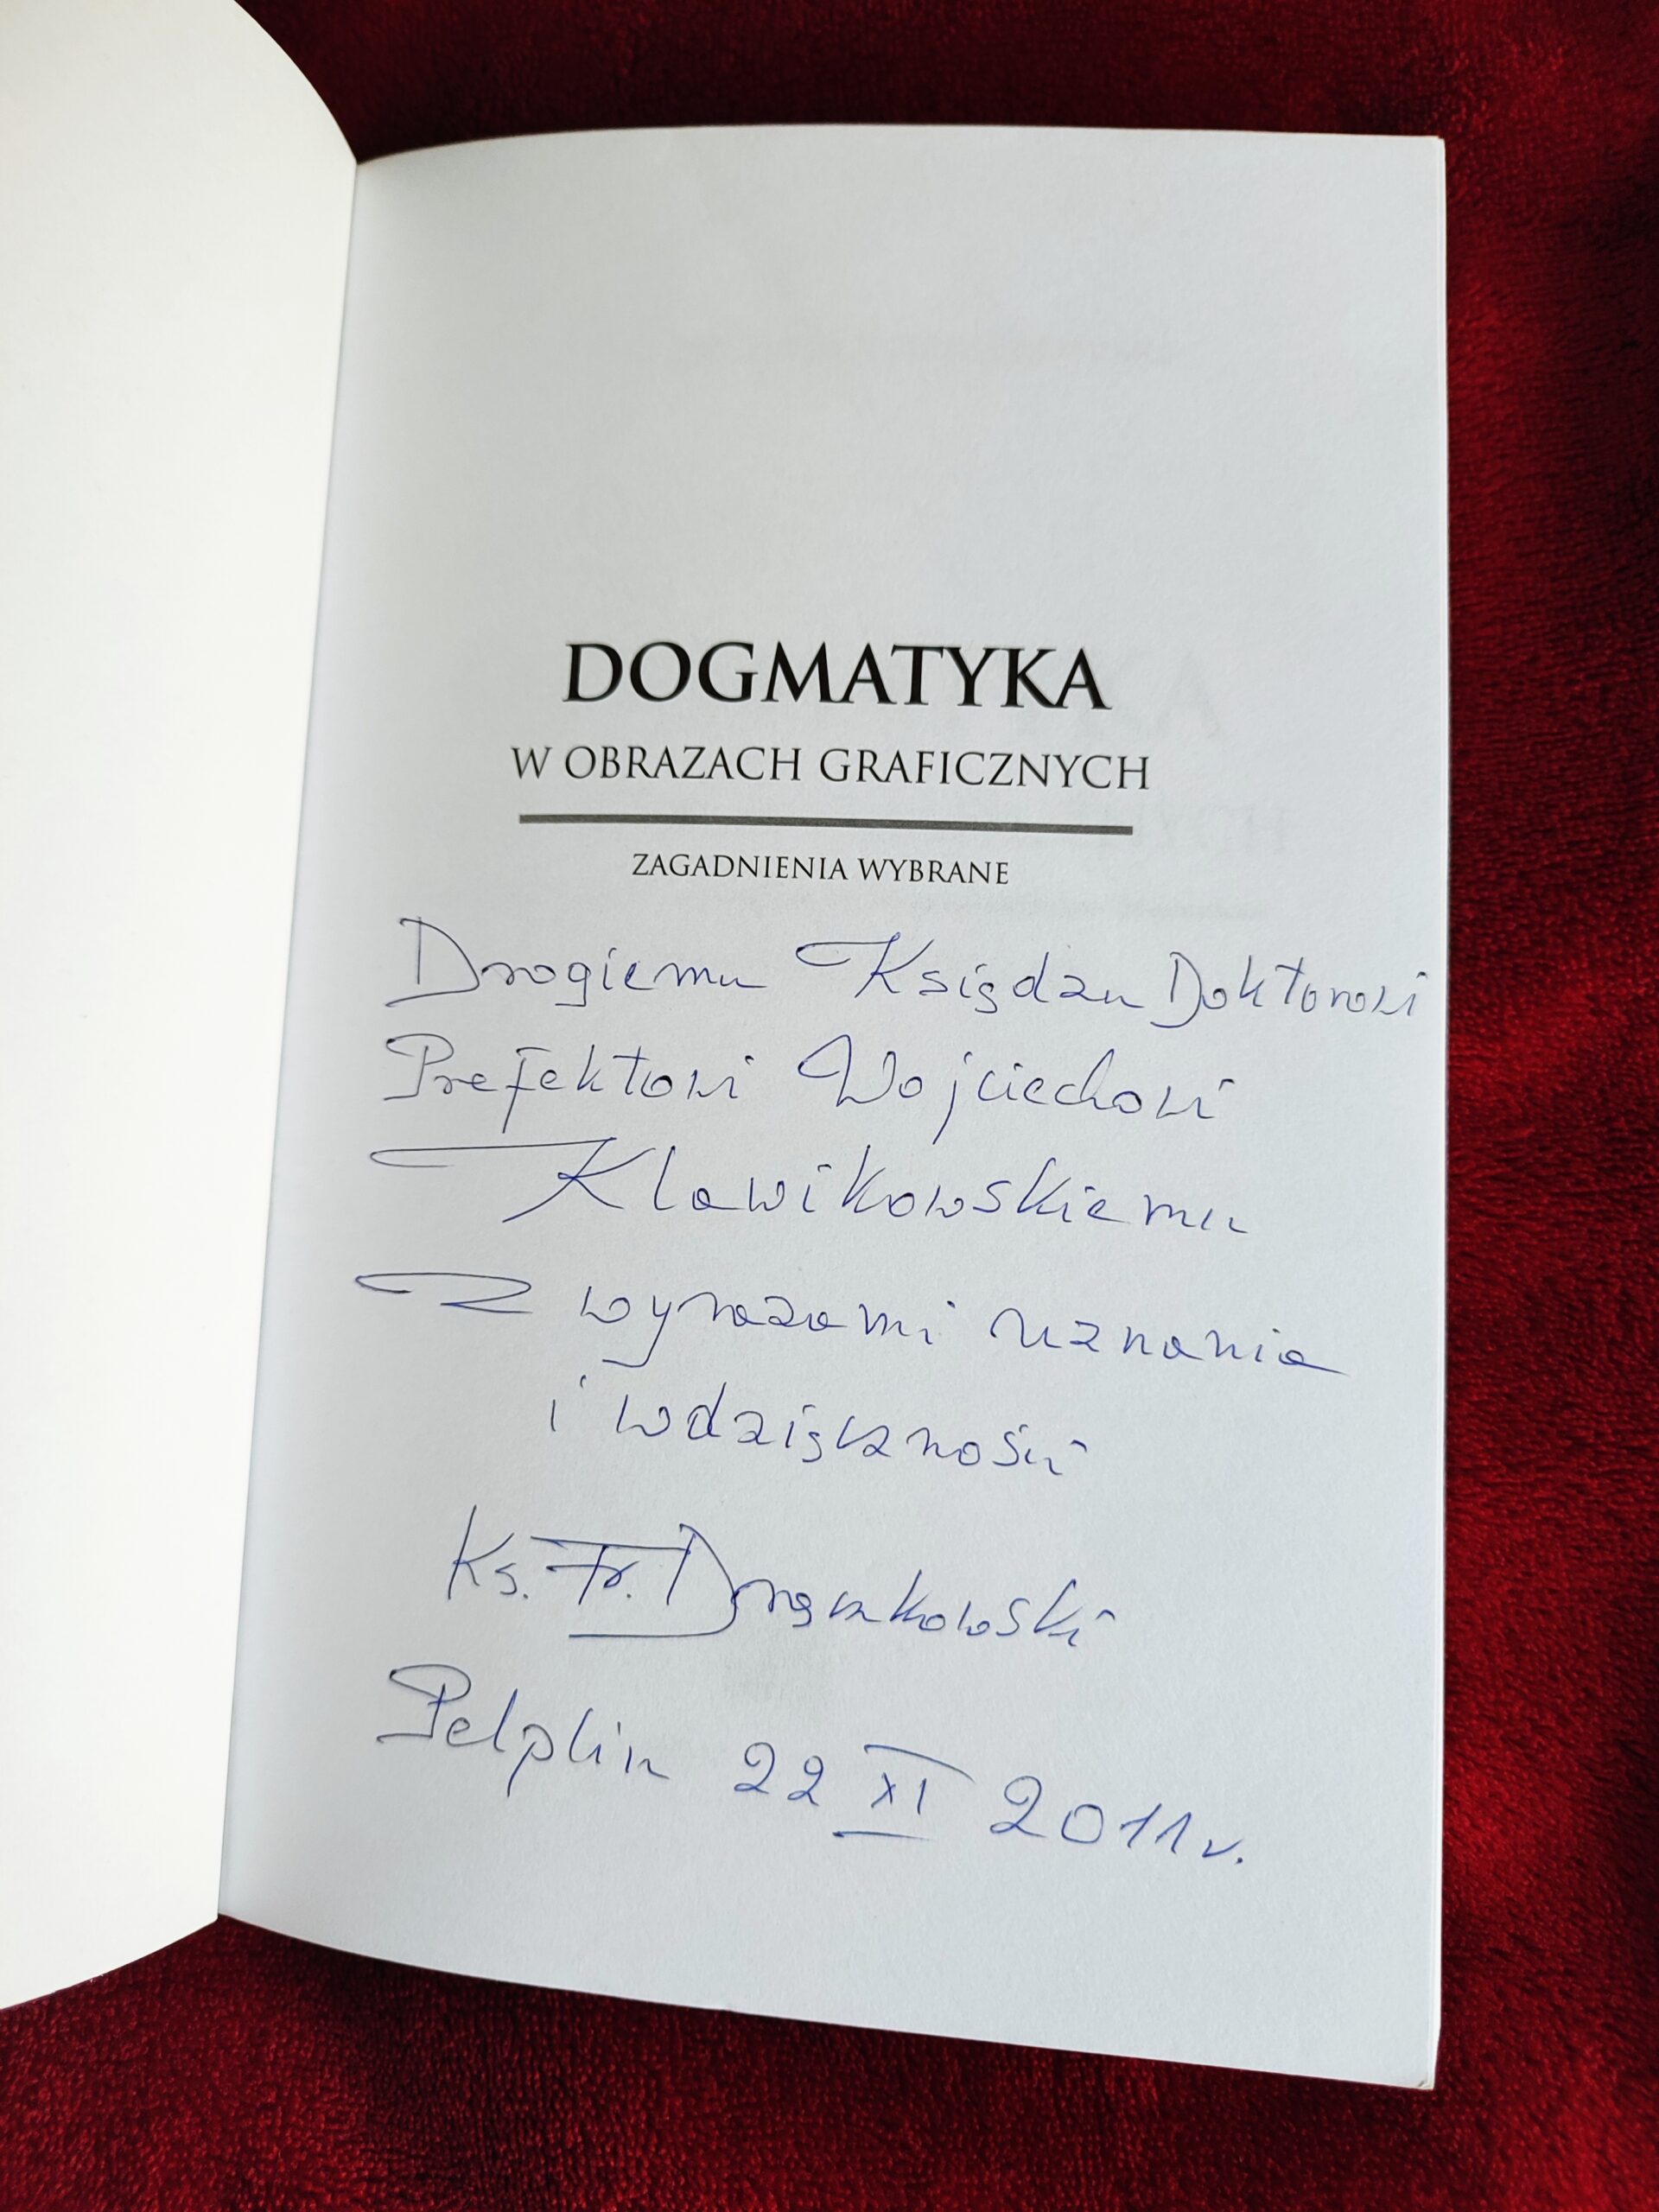 DOGMATYKA
W OBRAZACH GRAFICZNYCH
ZAGADNIENIA WYBRANE
Drogiemu Księdzu Doktorowi
Prefektowi Wojciechowi
Klawikowskiemu
Z wyrazami uznania
i wdzięczności
Ks. Fr. Drączkowski
Pelplin 22 XI 2011 r.